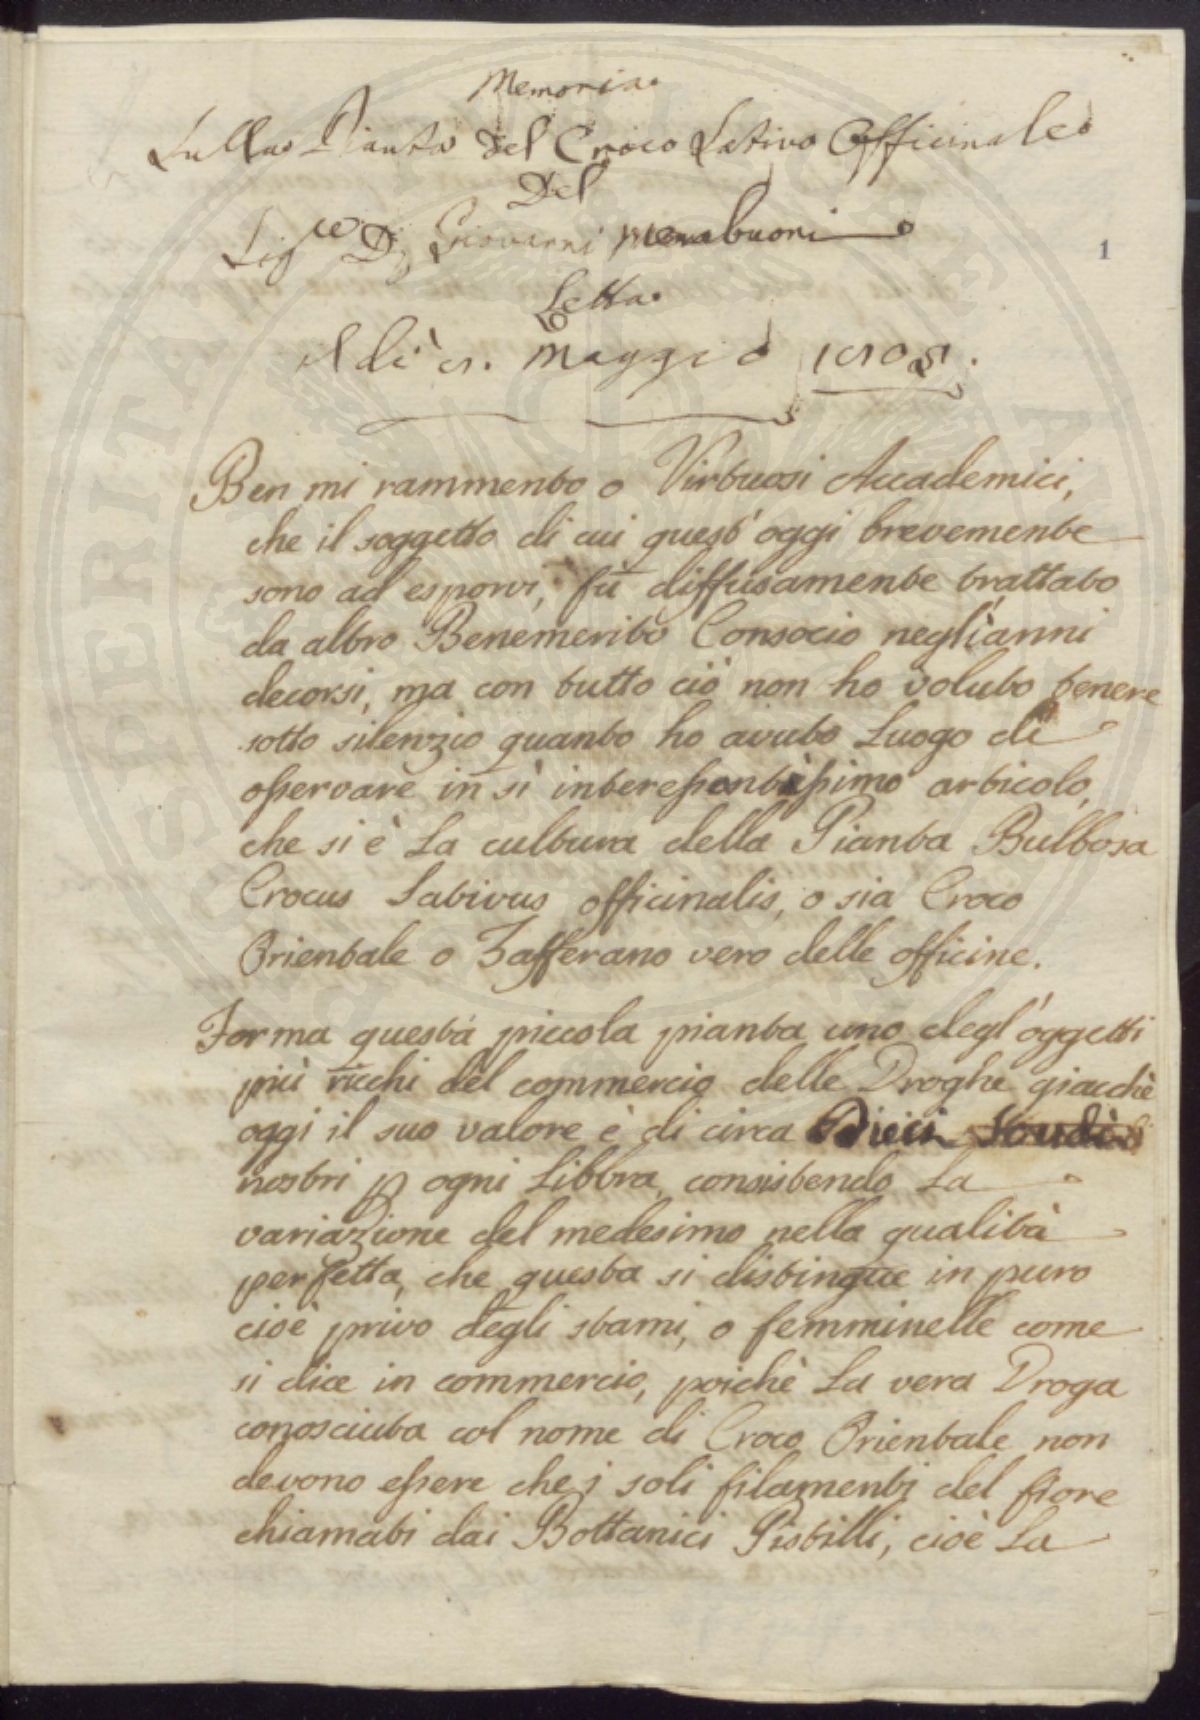 Memoria
Sulla Pianta del Croco Sativo Officinale
Del
Sig.re D. Giovanni Menabuoni
Letta
Il dì Maggio
1
Ben mi rammento o Virtuosi Accademici,
che il soggetto di cui quest'oggi brevemente
sono ad esporvi, fù diffusamente trattato
da altro Benemerito Consocio negl'anni
decorsi, ma con tutto ciò non ho voluto tenere
sotto silenzio quanto ho avuto Luogo di
osservare in sì interessantissimo articolo,
che si è La cultura della Pianta Bulbosa
Crocus Sativus officinalis, o sia Croco
Orientale o Zafferano vero delle officine.
Forma questa piccola pianta uno degl'oggetti
più ricchi del commercio delle Droghe giacchè
oggi il suo valore è di circa Dieci Scudi
nostri p ogni Libbra, consistendo La
variazione del medesimo nella qualità
perfetta, che questa si distingue in puro
cioè privo degli stami, o femminelle come
si dice in commercio, poichè La vera Droga
conosciuta col nome di Croco Orientale non
devono essere che i soli filamenti del fiore
chiamati dai Bottanici Pistilli, cioè La
SPERITAT